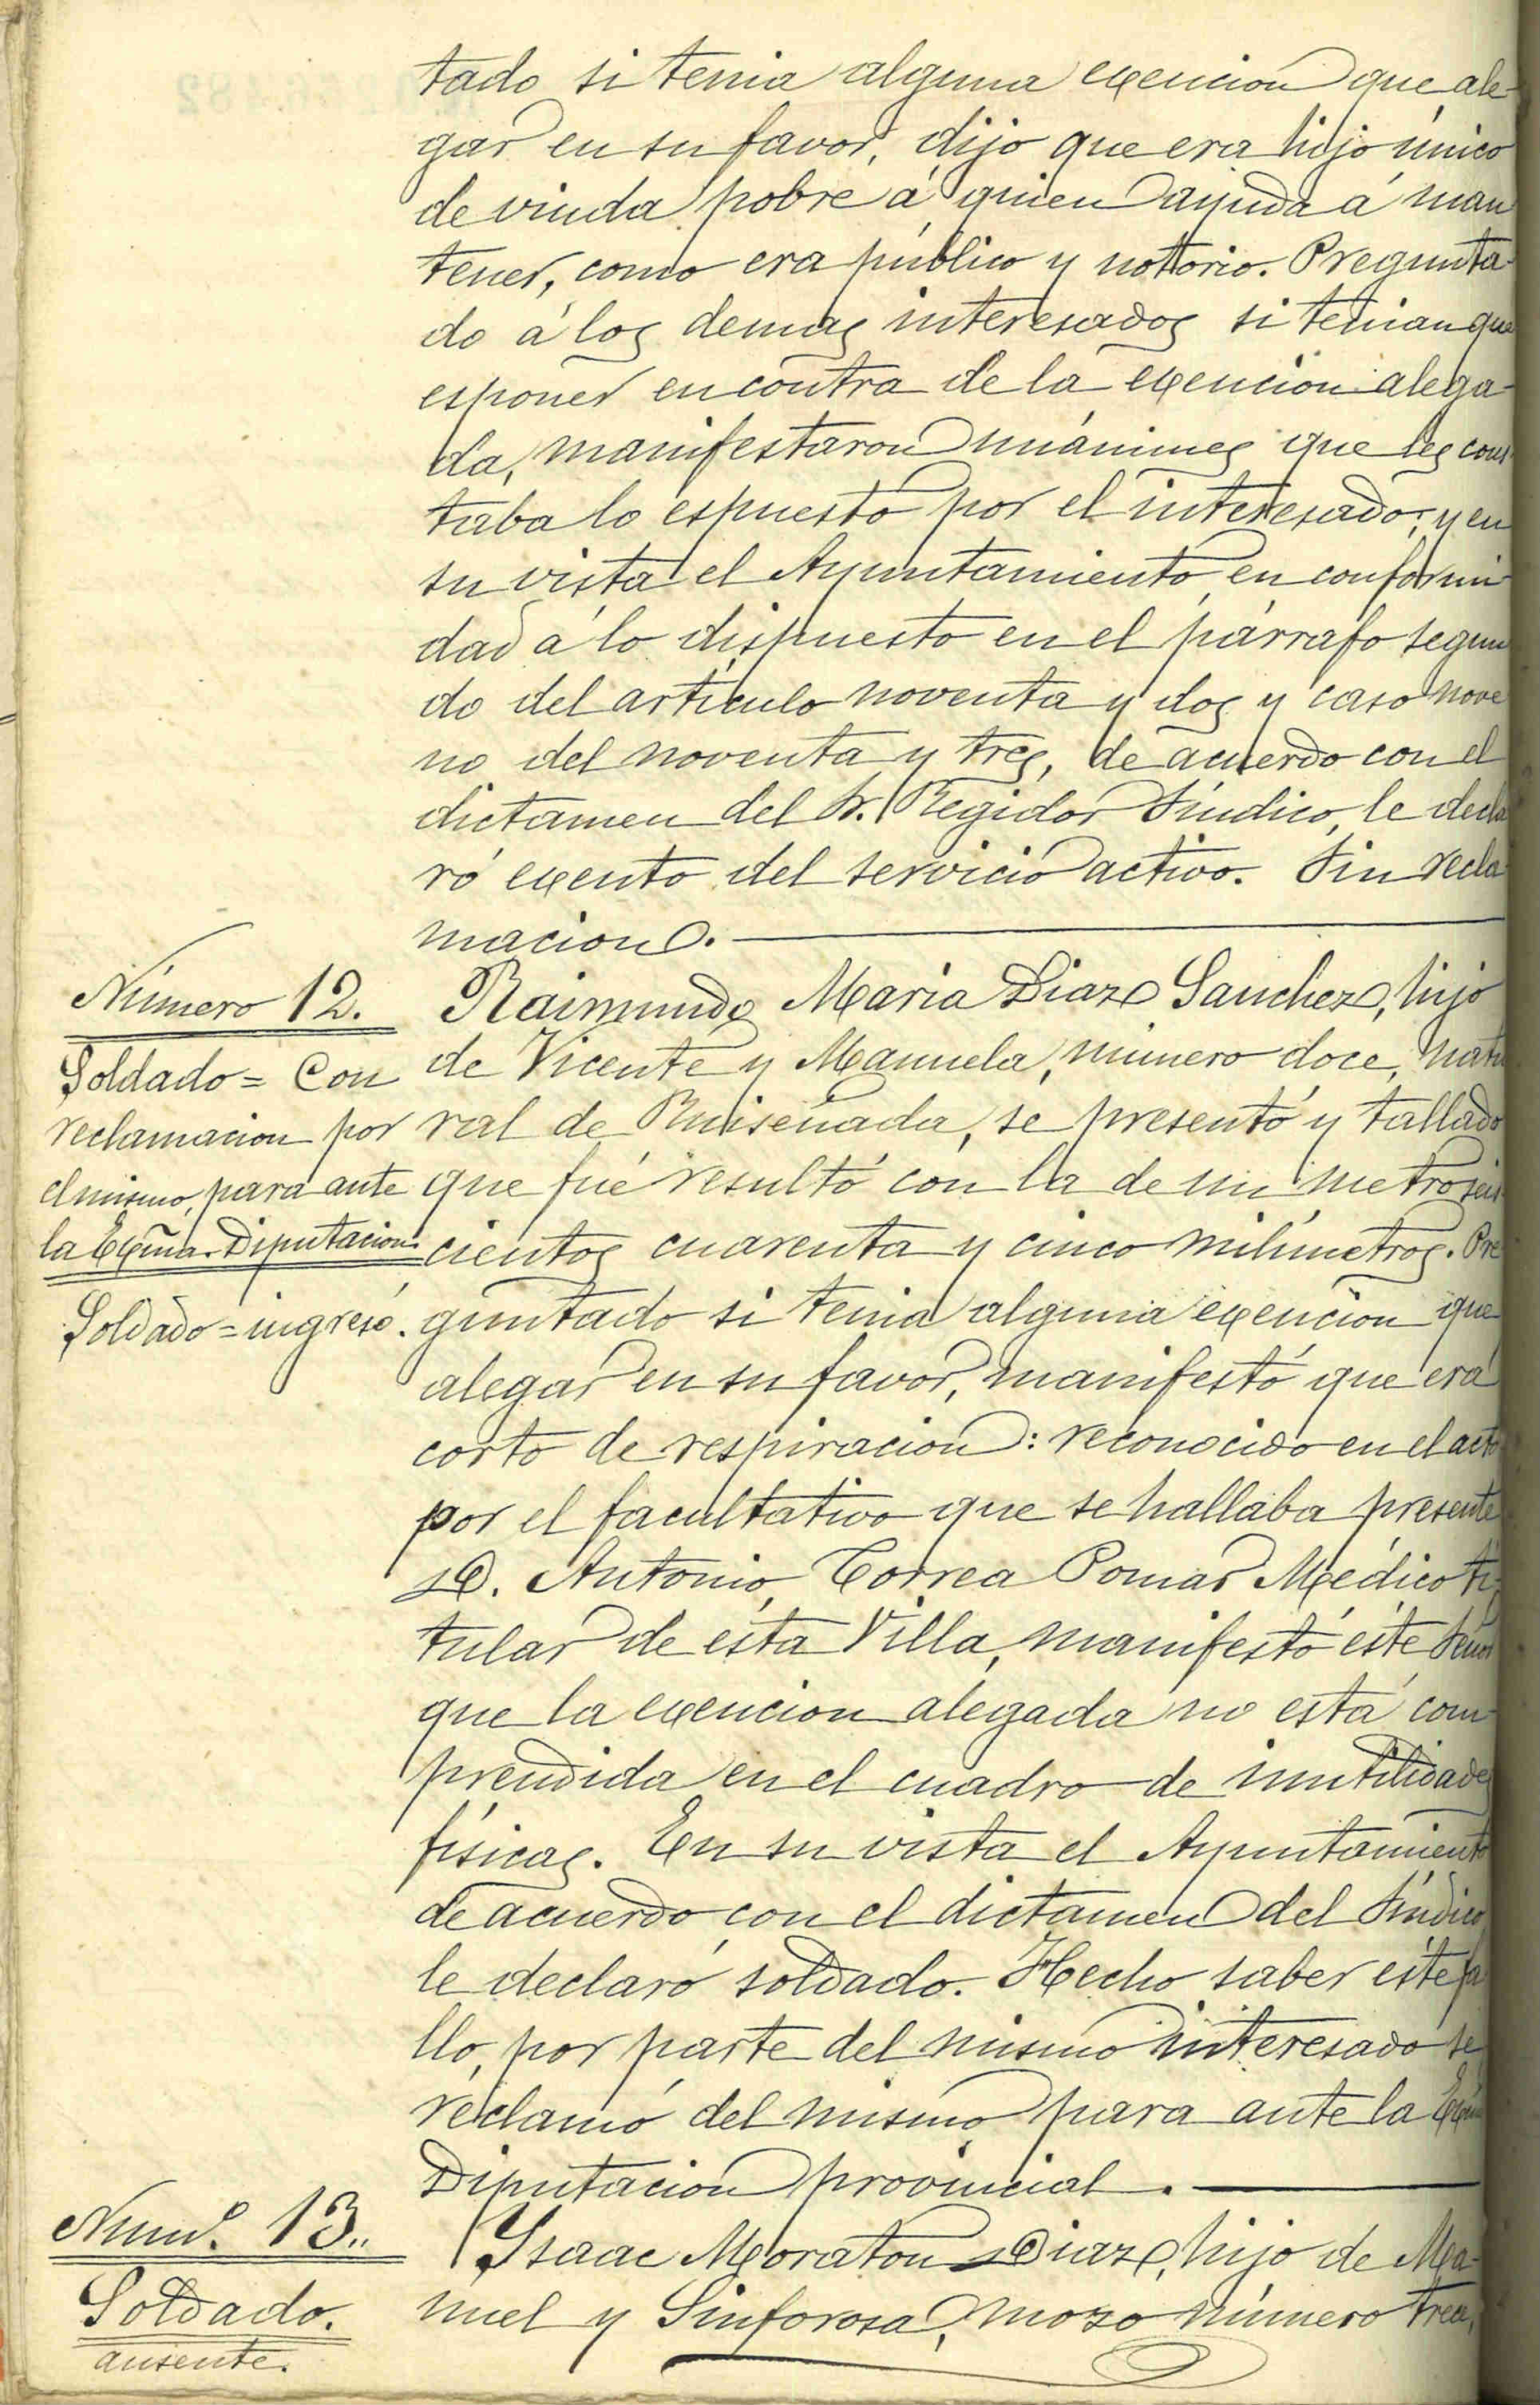 tado si tenia alguna exencion que ale-
gar en su favor, dijo que era hijo único
de viuda pobre á quien ayuda á man
tener, como era público y notorio. Pregunta-
do á los demas interesados si tenian que
esponer en contra de la exencion alega-
da, manifestaron unánimes que les cons
taba lo espuesto por el interesado; y en
su vista el Ayuntamiento, en conformi-
dad á lo dispuesto en el párrafo segun
do del artículo noventa y dos y caso nove
no del noventa y tres, de acuerdo con el
dictamen del Sr. Regidor Síndico, le decla
ró exento del servicio activo. Sin recla-
macion.
Número 12.
Soldado = Con
reclamacion por
el mismo, para ante
la Excma. Diputacion
Soldado = ingresó.
Raimundo Maria Diaz Sanchez, hijo
de Vicente y Manuela, número doce, natu
ral de Ruiseñada, se presentó y tallado
que fué resultó con la de un metro seis
cientos cuarenta y cinco milímetros. Pre
guntado si tenia alguna exencion que
alegar en su favor, manifestó que era
corto de respiracion: reconocido en el acto
por el facultativo que se hallaba presente
D. Antonio Correa Pomar Médico ti-
tular de ésta Villa, manifestó éste Señor
que la exencion alegada no está com-
prendida en el cuadro de inutilidades
físicas. En su vista el Ayuntamiento
de acuerdo con el dictamen del Síndico
le declaró soldado. Hecho saber éste fa
llo, por parte del mismo interesado se
reclamó del mismo para ante la Excma
Diputacion provincial.
Numº. 13..
Soldado.
ausente.
Isaac Moraton Diaz, hijo de Ma-
nuel y Sinforosa, mozo número trece,